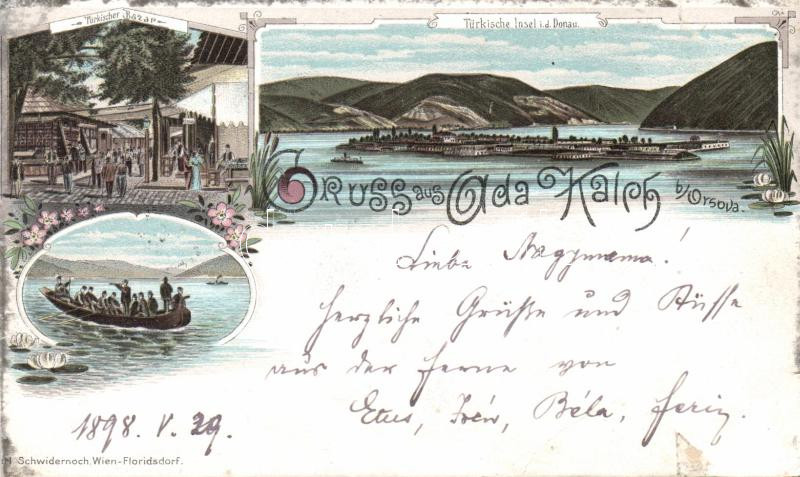 Türkischer Bazar
Türkische Insel i.d. Donau.
Gruss aus Ada Kaleh b/Orsova.
Liebe Nagymama!
herzliche Grüße und Küsse
aus der Ferne von
Etus, Irén, Béla, Feriz.
1898. V. 29.
Schwidernoch, Wien-Floridsdorf.